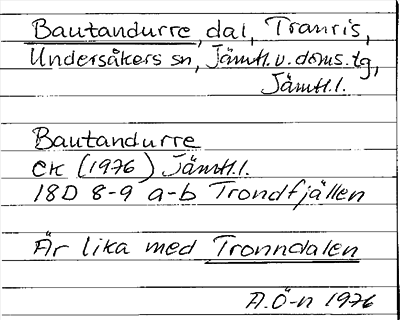 Bautandurre, dal, Tranris,
Undersåkers sn, Jämtl.v.doms.tg,
Jämtl.l.
Bautandurre
CK (1976) Jämtl.l.
18D 8-9 a-b Trondfjällen
Är lika med Tronndalen
A.Ö-n 1976